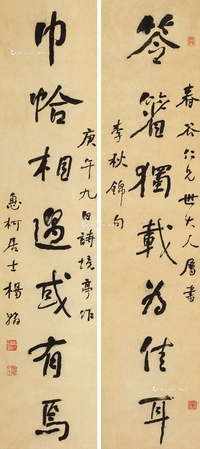 春谷仁兄世大人属书
笭箵獨載為佳耳
李秋錦句
巾帢相遇或有焉
庚午九日詩境亭作
惠柯居士楊翰